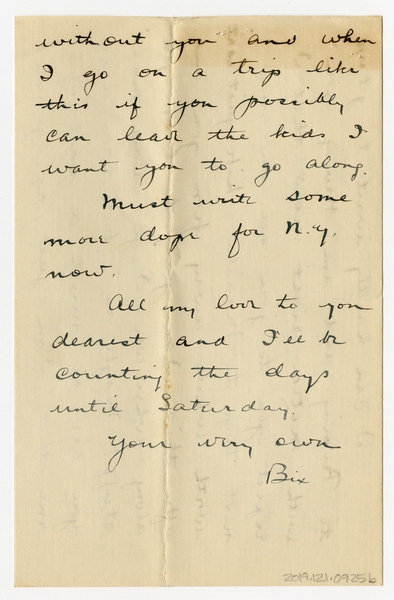 without you and when
I go on a trip like
this if you possibly
can leave the kids I
want you to go along.
Must write some
more dope for N.Y.
now.
All my love to you
dearest and I'll be
counting the days
until Saturday.
Your very own
Bix
2019.121.0925b